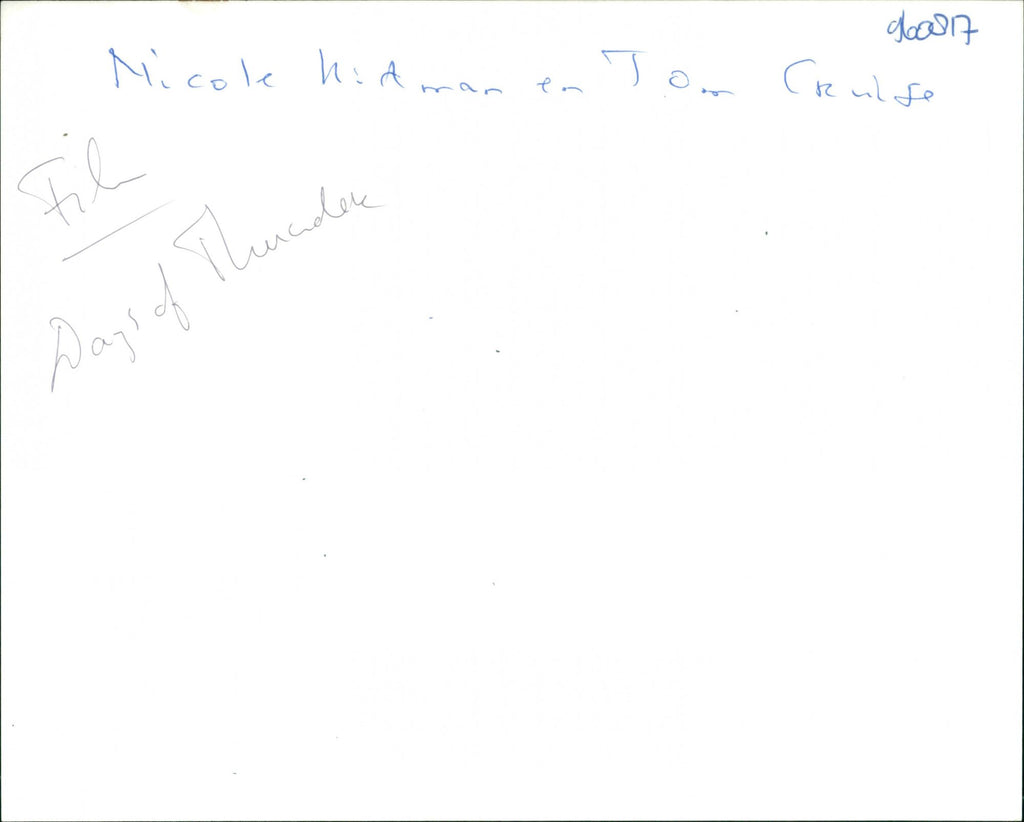 960817
Nicole Kidman en Tom Cruise
Film
Days of Thunder